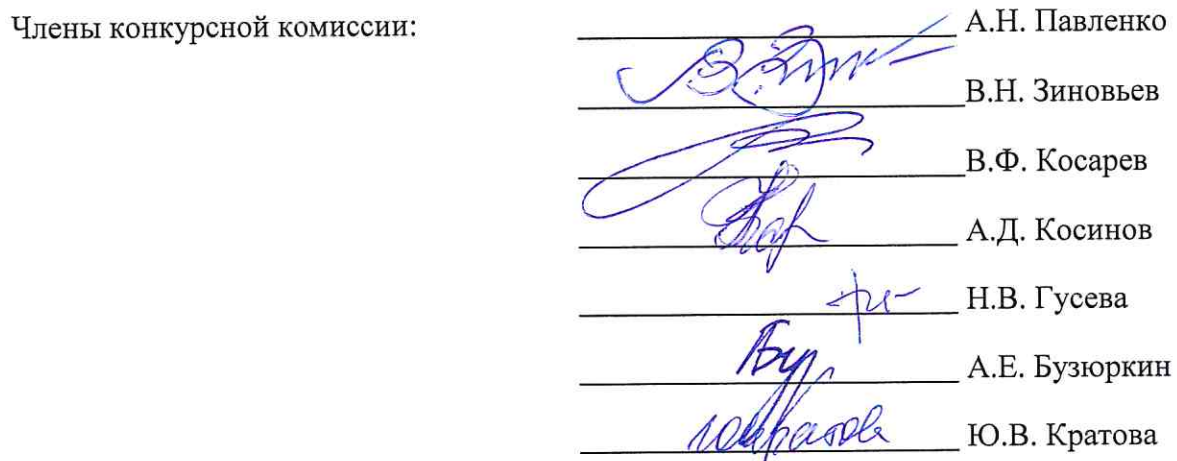 Члены конкурсной комиссии: А.Н. Павленко
В.Н. Зиновьев
В.Ф. Косарев
А.Д. Косинов
Н.В. Гусева
А.Е. Бузюркин
Ю.В. Кратова